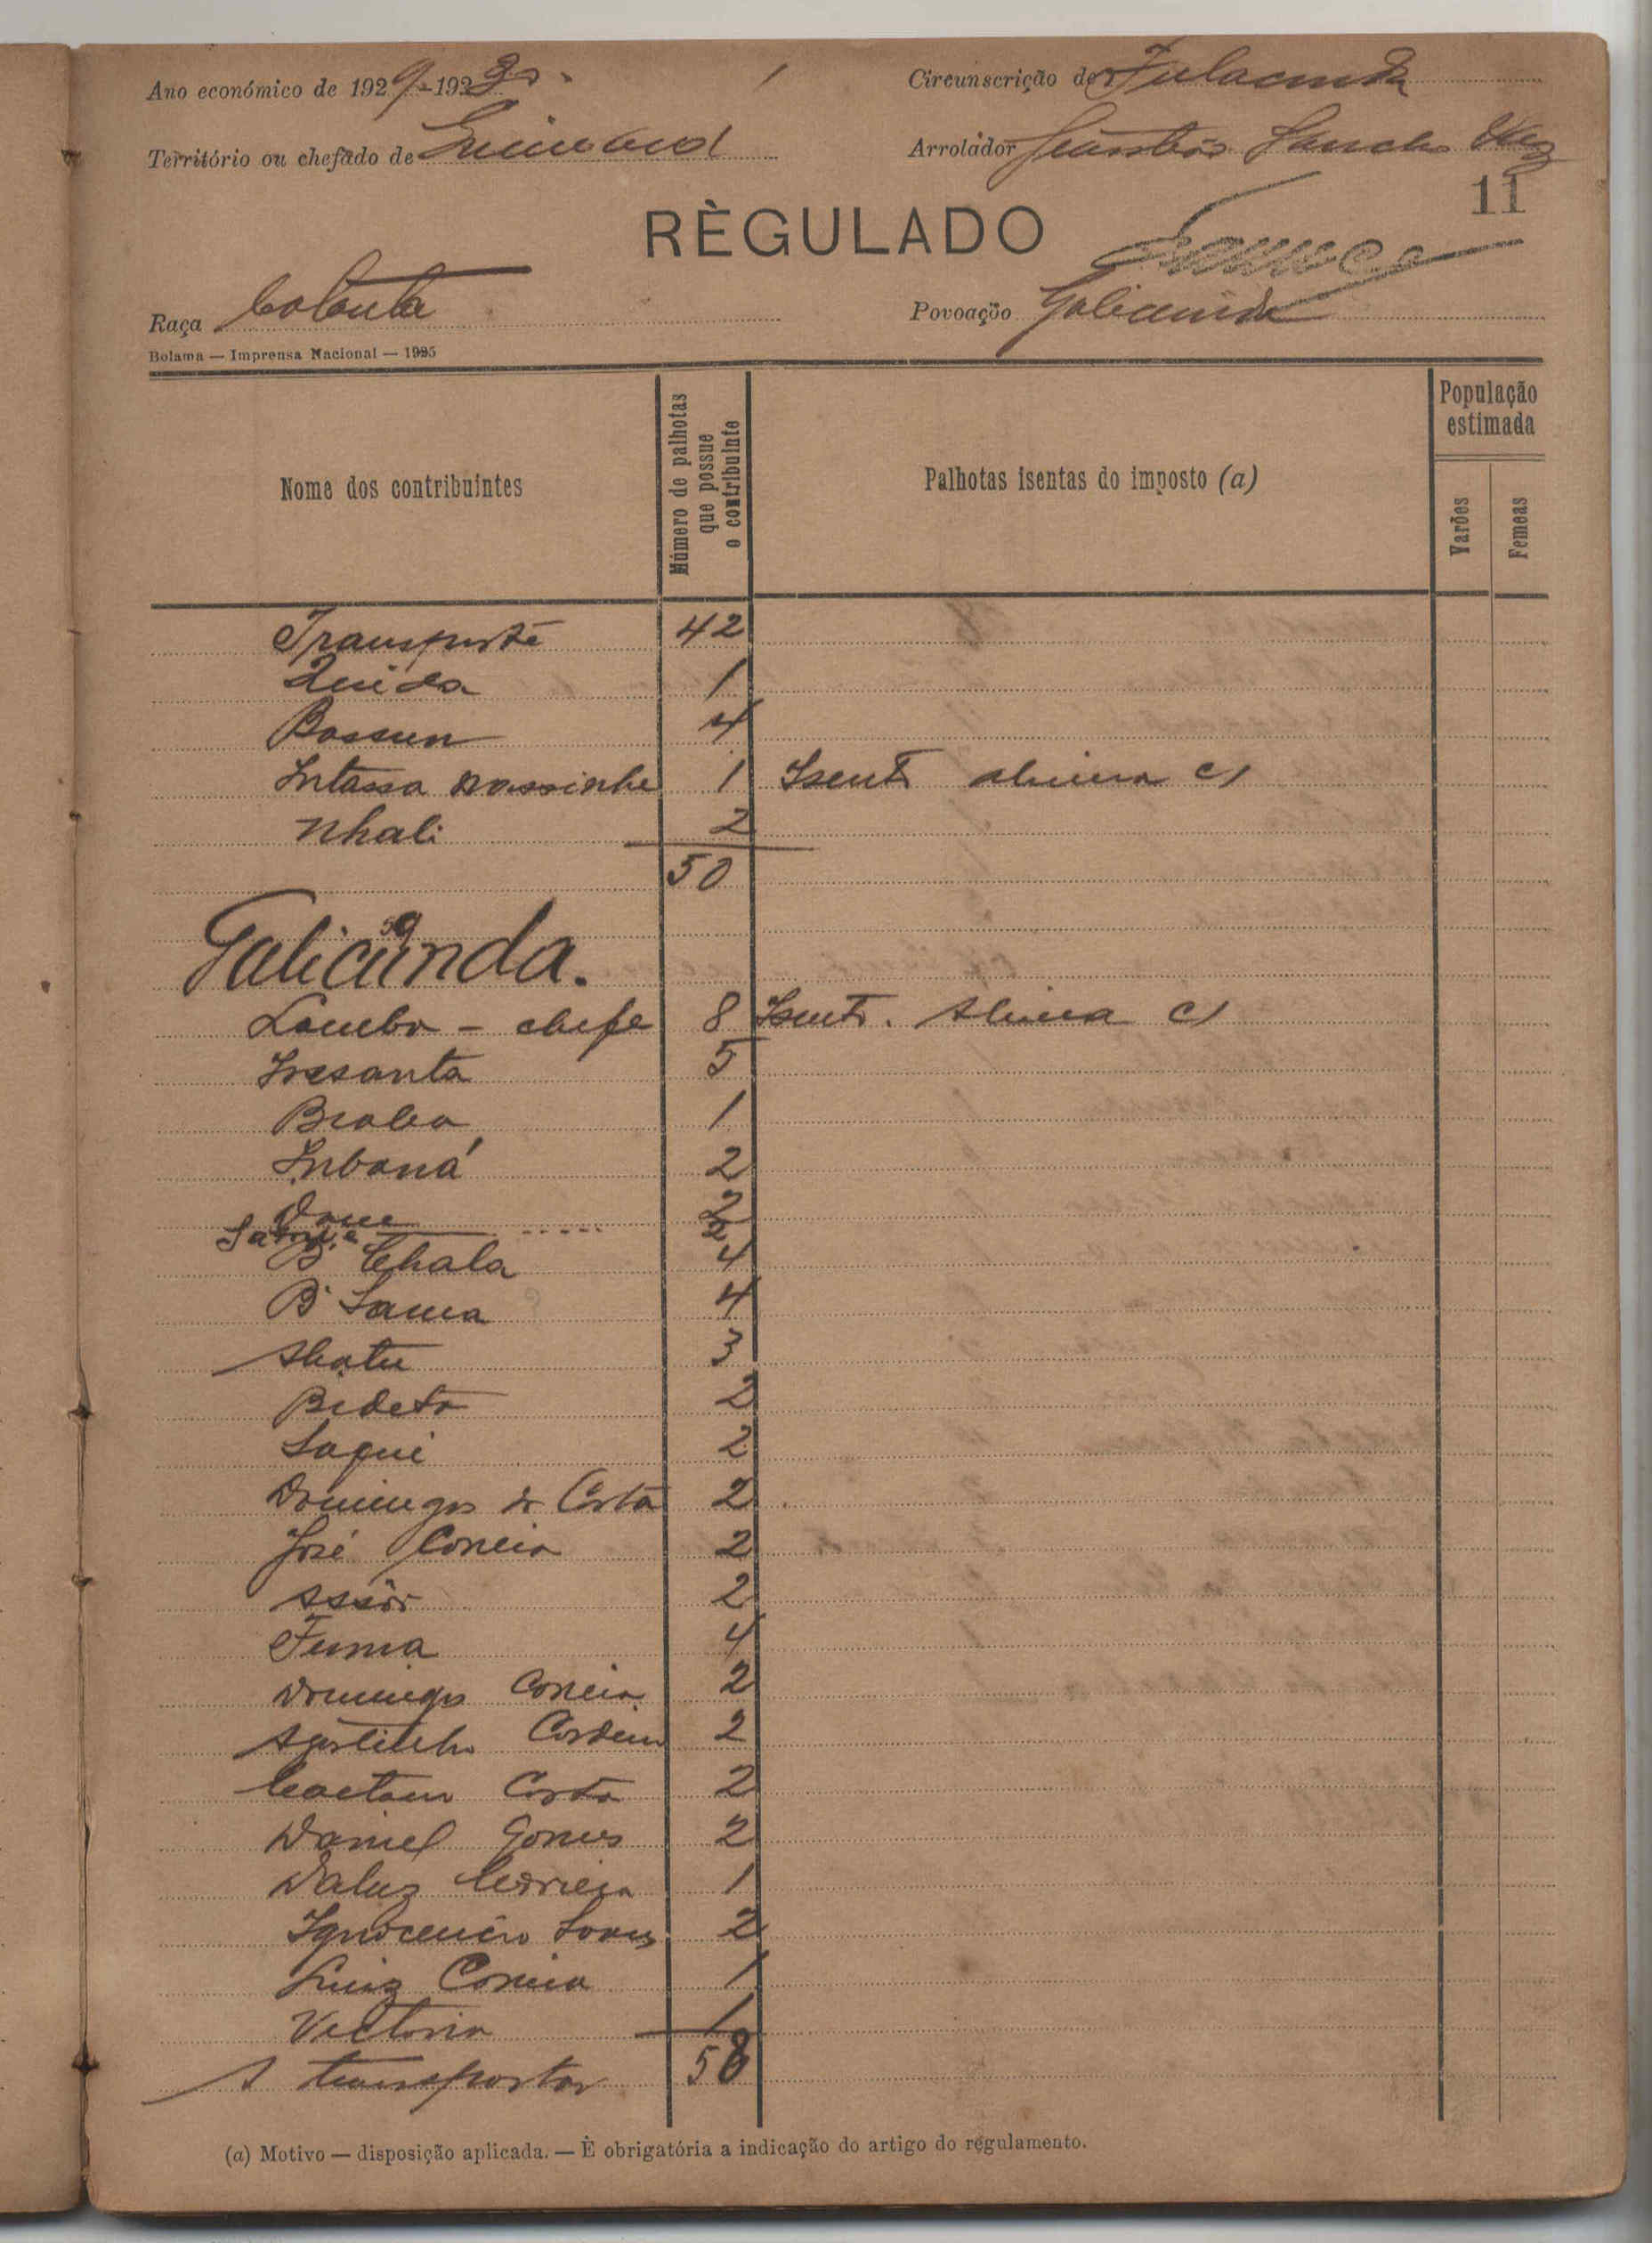 Ano económico de 1929-1930.
Circunscrição de Fulacunda
Território ou chefado de
Arrolador Sancho
11
RÈGULADO
Raça
Povoação Galicunda
Bolama — Imprensa Nacional — 1925
Nome dos contribuintes
Número de palhotas que possue o contribuinte
Palhotas isentas do imposto (a)
População estimada
Varões
Femeas
Transporte 42
Quida 1
Bossun 4
Intassa nassinhe 1 Isento alinea c)
Nhali 2
50
Galicunda.
Lambo - chefe 8 Isento. Alinea c)
5
1
Inbaná 2
2
2
B' Chala 4
B' Sama 4
3
Bideta 2
Saqui 2
Domingos da Costa 2
José Correia 2
2
Fuma 4
Domingos Correia 2
Agostinho Cordeiro 2
Caetano Costa 2
Daniel Gomes 2
Daluz Correia 1
Ignocencio 2
Luiz Correia 1
Victoria 1
A transportar 58
(a) Motivo — disposição aplicada. — È obrigatória a indicação do artigo do regulamento.